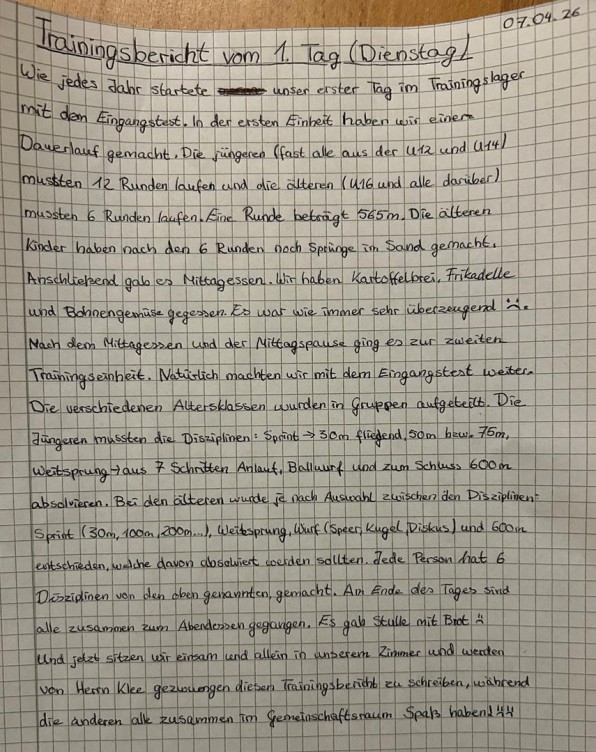 07.04.26
Trainingsbericht vom 1. Tag (Dienstag)
Wie jedes Jahr startete unser erster Tag im Trainingslager
mit dem Eingangstest. In der ersten Einheit haben wir einen
Dauerlauf gemacht. Die jüngeren (fast alle aus der U12 und U14)
mussten 12 Runden laufen und die älteren (U16 und alle darüber)
mussten 6 Runden laufen. Eine Runde beträgt 565m. Die älteren
Kinder haben nach den 6 Runden noch Sprünge im Sand gemacht.
Anschließend gab es Mittagessen. Wir haben Kartoffelbrei, Frikadelle
und Bohnengemüse gegessen. Es war wie immer sehr überzeugend :(.
Nach dem Mittagessen und der Mittagspause ging es zur zweiten
Trainingseinheit. Natürlich machten wir mit dem Eingangstest weiter.
Die verschiedenen Altersklassen wurden in Gruppen aufgeteilt. Die
Jüngeren mussten die Disziplinen: Sprint → 30m fliegend, 50m bzw. 75m,
Weitsprung → aus 7 Schritten Anlauf, Ballwurf und zum Schluss 600m
absolvieren. Bei den älteren wurde je nach Auswahl zwischen den Disziplinen:
Sprint (30m, 100m, 200m...), Weitsprung, Wurf (Speer, Kugel, Diskus) und 600m
entschieden, welche davon absolviert werden sollten. Jede Person hat 6
Disziplinen von den oben genannten, gemacht. Am Ende des Tages sind
alle zusammen zum Abendessen gegangen. Es gab Stulle mit Brot :)
Und jetzt sitzen wir einsam und allein in unserem Zimmer und werden
von Herrn Klee gezwungen diesen Trainingsbericht zu schreiben, während
die anderen alle zusammen im Gemeinschaftsraum Spaß haben!